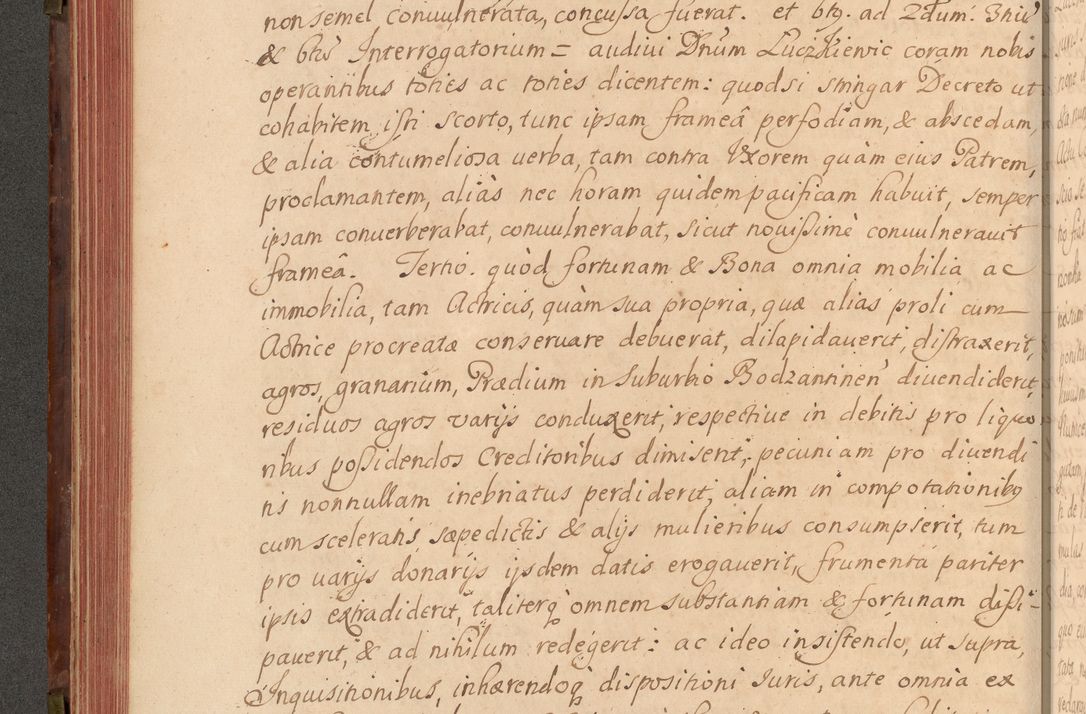 non semel convulnerata, concussa fuerat. et btq. ad 2dum. 3tiu
& btu Interrogatorium = audivi Dnum Luczkiewic coram nobis
operantibus toties ac toties dicentem: quod si stringar Decreto ut
cohabitem isti scorto, tunc ipsam frameâ perfodiam, & abscedam,
& alia contumeliosa verba, tam contra Uxorem quàm eius Patrem,
proclamantem, aliàs nec horam quidem pacificam habuit, semper
ipsam converberabat, convulnerabat, sicut novissimè convulneravit
frameâ. Tertio. quòd fortunam & Bona omnia mobilia ac
immobilia, tam Actricis, quàm sua propria, quæ alias proli cum
Actrice procreatæ conservare debuerat, dilapidaverit, distraxerit,
agros, granarium, Prædium in suburbio Bodzantinen divendiderit,
residuos agros varijs conduxerit, respective in debitis pro liquo
ribus possidendos Creditoribus dimiserit, pecuniam pro divendi
tis nonnullam inebriatus perdiderit, aliam in compotationibq
cum sceleratis sæpedictis & alijs mulieribus consumpserit, tum
pro varijs donarijs ijsdem datis erogaverit, frumenta pariter
ipsis extradiderit, taliterq omnem substantiam & fortunam dissi=
paverit, & ad nihilum redegerit: ac ideo insistendo, ut supra,
Inquisitionibus, inhærendoq dispositioni Iuris, ante omnia ex